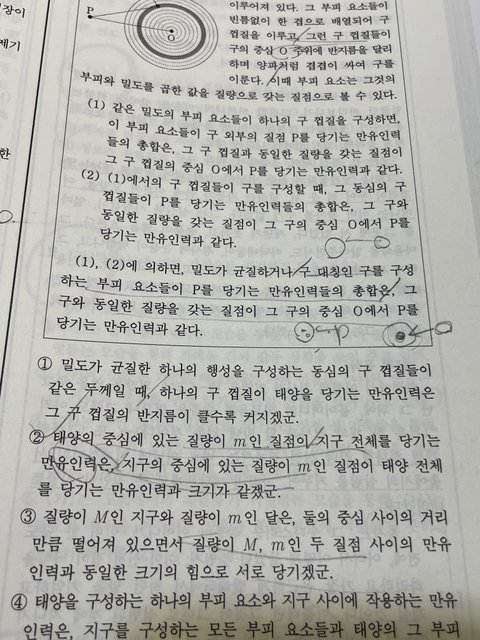 장이
제기
한
P
O
이루어져 있다. 그 부피 요소들이
빈틈없이 한 겹으로 배열되어 구
껍질을 이루고, 그런 구 껍질들이
구의 중심 O 주위에 반지름을 달리
하며 양파처럼 겹겹이 싸여 구를
이룬다. 이때 부피 요소는 그것의
부피와 밀도를 곱한 값을 질량으로 갖는 질점으로 볼 수 있다.
(1) 같은 밀도의 부피 요소들이 하나의 구 껍질을 구성하면,
이 부피 요소들이 구 외부의 질점 P를 당기는 만유인력
들의 총합은, 그 구 껍질과 동일한 질량을 갖는 질점이
그 구 껍질의 중심 O에서 P를 당기는 만유인력과 같다.
(2) (1)에서의 구 껍질들이 구를 구성할 때, 그 동심의 구
껍질들이 P를 당기는 만유인력들의 총합은, 그 구와
동일한 질량을 갖는 질점이 그 구의 중심 O에서 P를
당기는 만유인력과 같다.
(1), (2)에 의하면, 밀도가 균질하거나 구 대칭인 구를 구성
하는 부피 요소들이 P를 당기는 만유인력들의 총합은, 그
구와 동일한 질량을 갖는 질점이 그 구의 중심 O에서 P를
당기는 만유인력과 같다.
① 밀도가 균질한 하나의 행성을 구성하는 동심의 구 껍질들이
같은 두께일 때, 하나의 구 껍질이 태양을 당기는 만유인력은
그 구 껍질의 반지름이 클수록 커지겠군.
② 태양의 중심에 있는 질량이 m인 질점이 지구 전체를 당기는
만유인력은, 지구의 중심에 있는 질량이 m인 질점이 태양 전체
를 당기는 만유인력과 크기가 같겠군.
③ 질량이 M인 지구와 질량이 m인 달은, 둘의 중심 사이의 거리
만큼 떨어져 있으면서 질량이 M, m인 두 질점 사이의 만유
인력과 동일한 크기의 힘으로 서로 당기겠군.
④ 태양을 구성하는 하나의 부피 요소와 지구 사이에 작용하는 만유
인력은, 지구를 구성하는 모든 부피 요소들과 태양의 그 부피